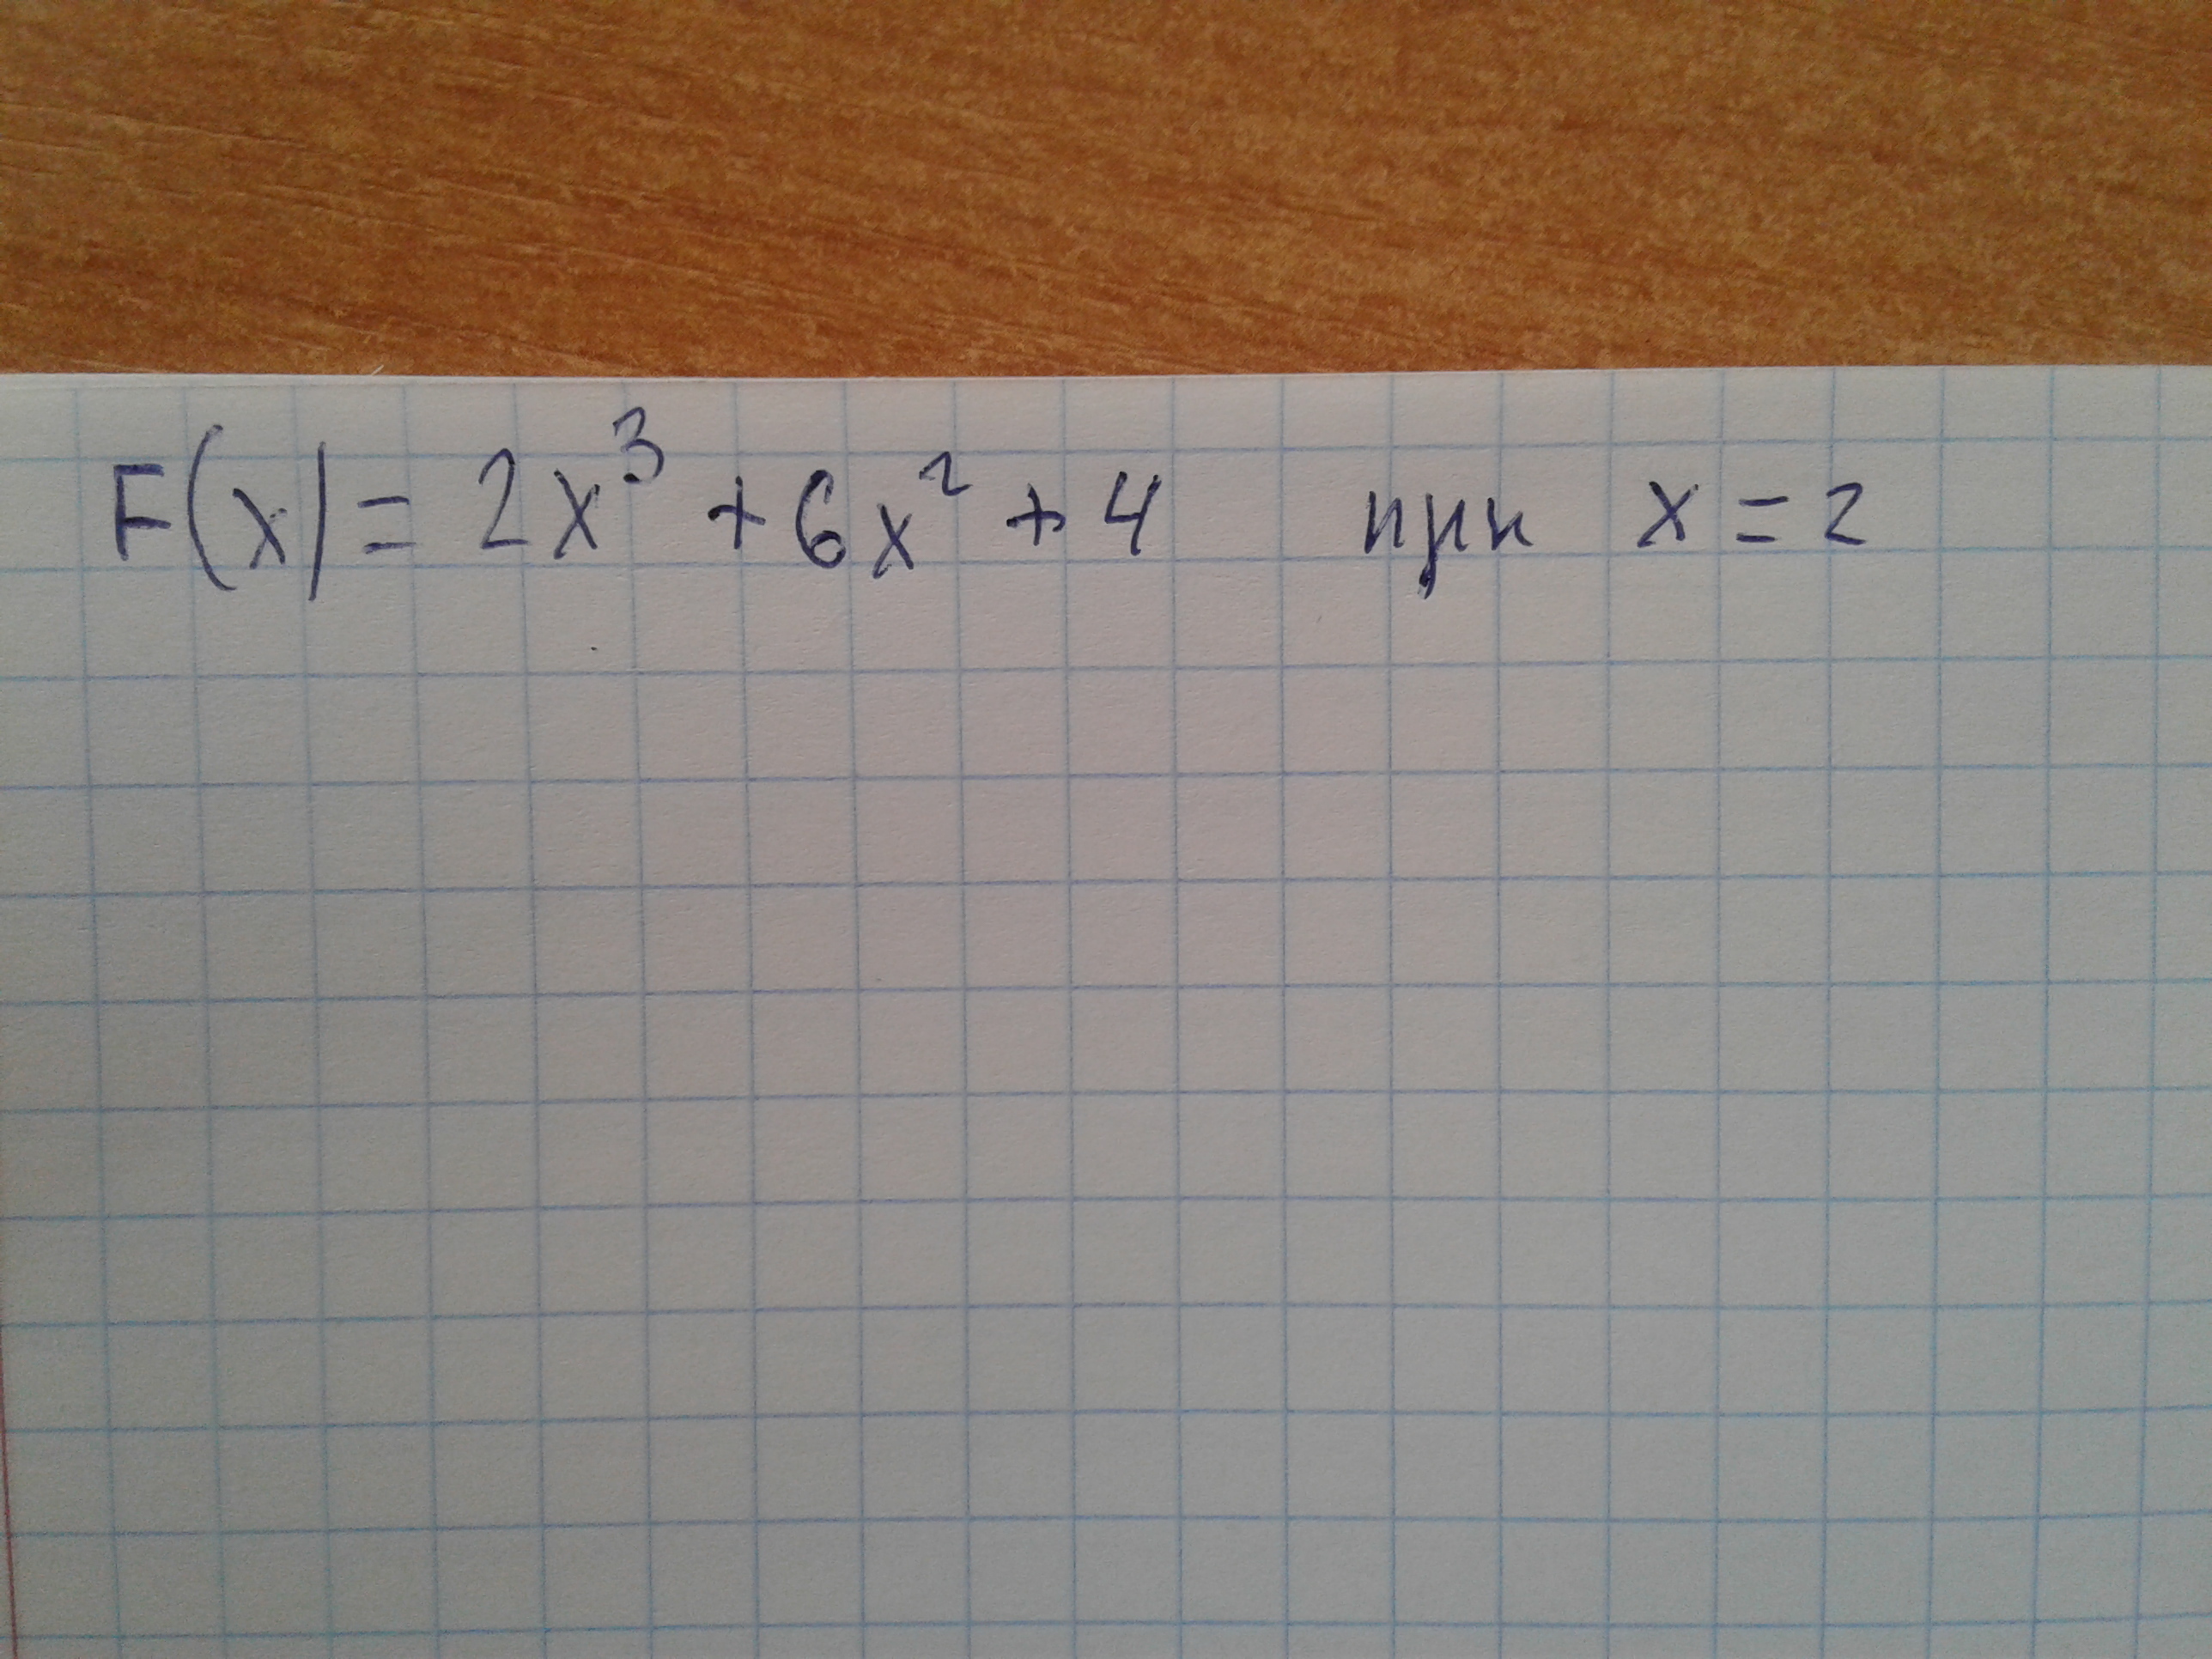 F(x) = 2x³ + 6x² + 4 при x = 2